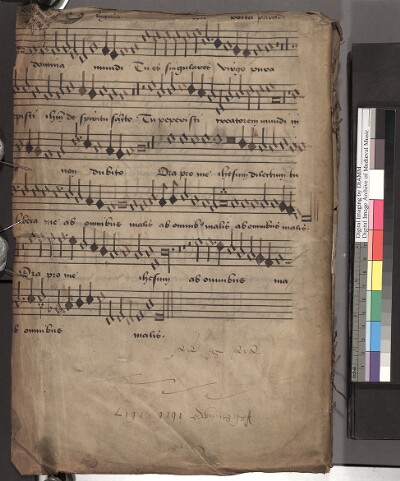 porta paradi
domina mundi Tu es singularis virgo pura
pisti ihm de spiritu sancto Tu peperisti creatorem mundi in
non dubito Ora pro me ihesum dilectum tu
libera me ab omnibus malis ab omnib malis ab omnibus malis
Ora pro me ihesum ab omnibus ma
b omnibus malis.
1611 1617
Digital Imaging by DIAMM
Digital Image Archive of Medieval Music